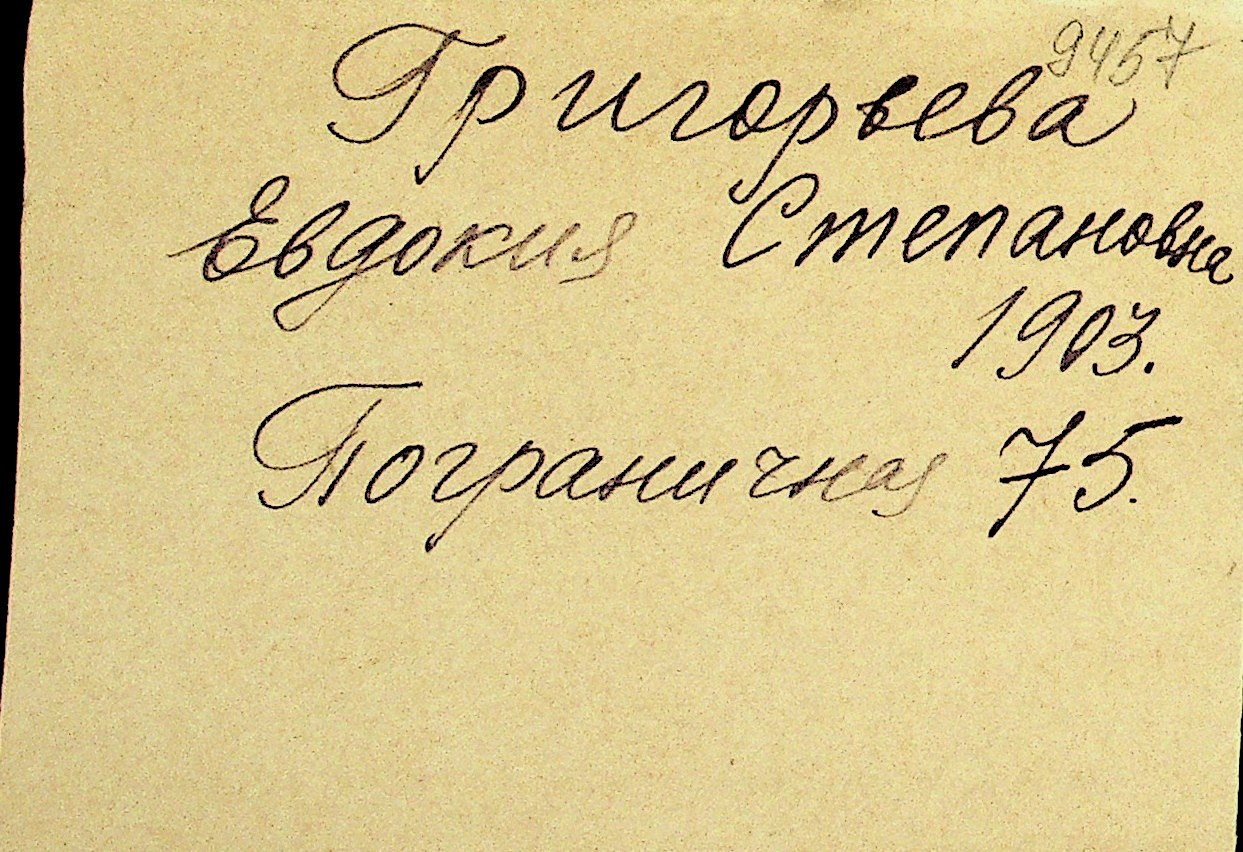 9457
Григорьева
Евдокия Степановна
1903.
Пограничная 75.